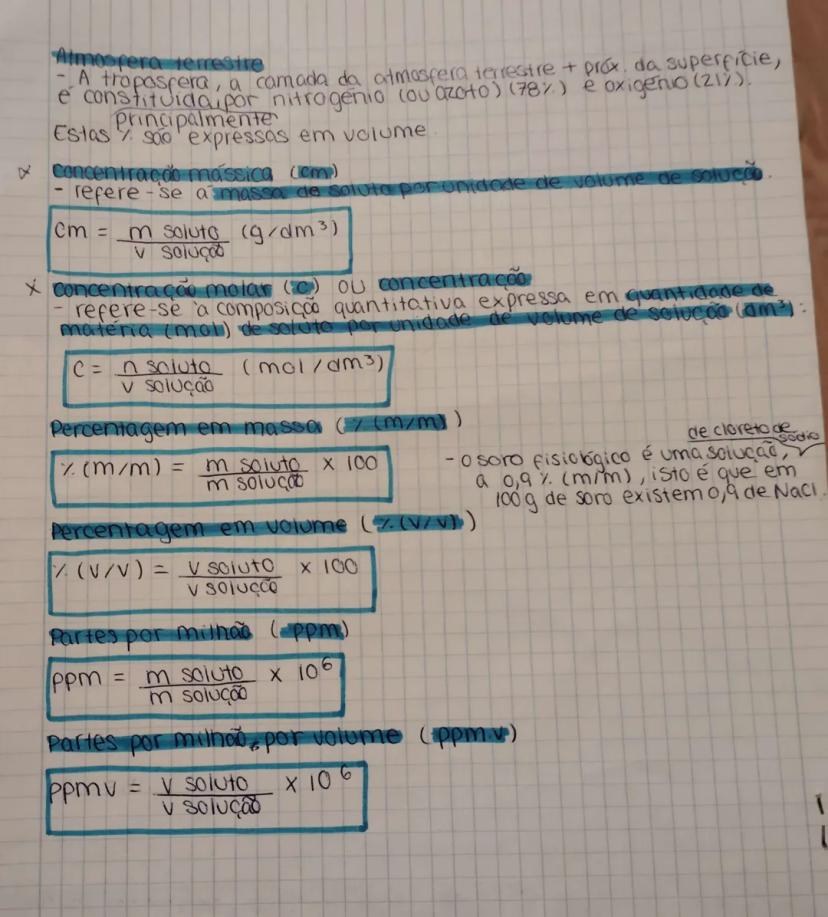 Atmosfera terrestre
- A troposfera, a camada da atmosfera terrestre + próx. da superfície,
é constituída, por nitrogénio (ou azoto) (78%) e oxigénio (21%).
principalmente
Estas % são expressas em volume.
x concentração mássica (cm)
- refere-se à massa de soluto por unidade de volume de solução.
cm = m soluto / v solução (g/dm³)
x concentração molar (c) ou concentração
- refere-se à composição quantitativa expressa em quantidade de
matéria (mol) de soluto por unidade de volume de solução (dm³):
c = n soluto / v solução (mol/dm³)
Percentagem em massa (% (m/m))
% (m/m) = m soluto / m solução × 100
de cloreto de
sódio
- O soro fisiológico é uma solução,
a 0,9% (m/m), isto é que em
100g de soro existem 0,9 de NaCl.
Percentagem em volume (% (v/v))
% (v/v) = v soluto / v solução × 100
Partes por milhão (ppm)
ppm = m soluto / m solução × 10⁶
Partes por milhão, por volume (ppmv)
ppmv = v soluto / v solução × 10⁶